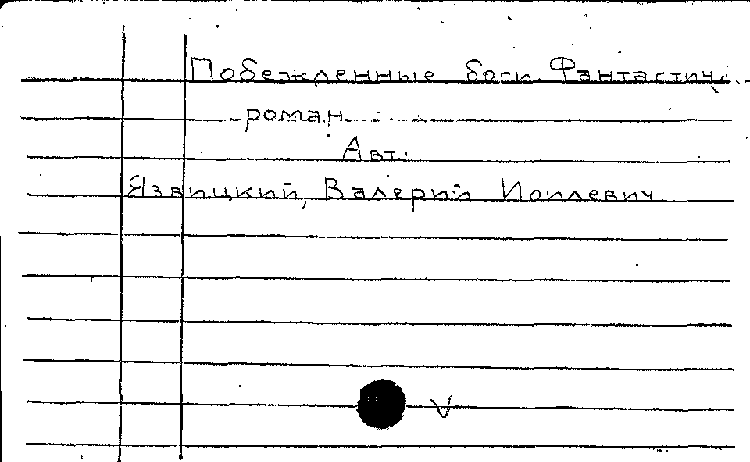 Побежденные боги. Фантастич.
роман.
Авт.:
Язвицкий, Валерий Иоилевич
V